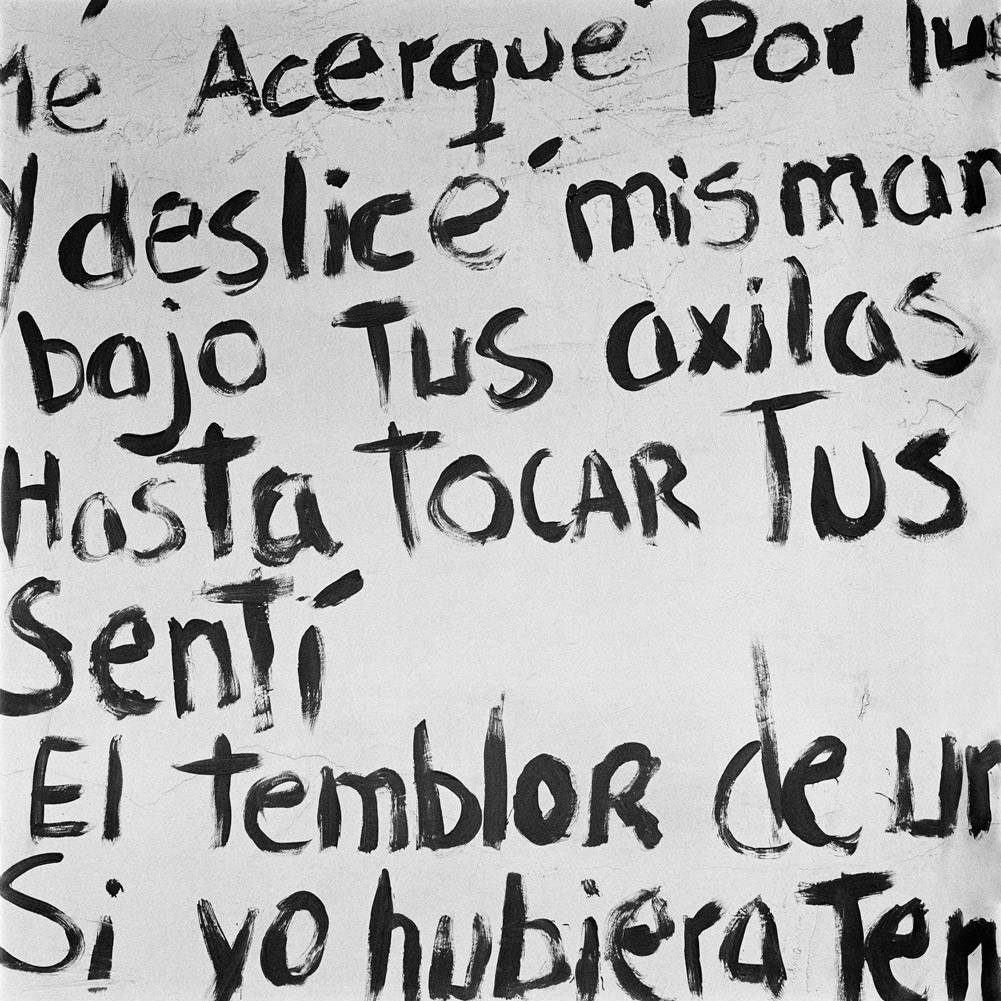 mé Acerqué Por lu
y deslicé mis man
bajo Tus axilas
Hasta TOCAR Tus
Sentí
El temblor de un
Si yo hubiera Ten